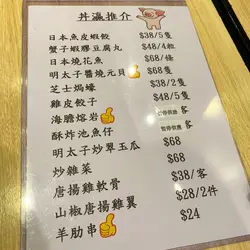 丼瀛推介
日本魚皮蝦餃 $38/5隻
蟹子蝦膠豆腐丸 $48/4粒
日本燒花魚 $68/條
明太子醬燒元貝 $38/隻
芝士焗蠔 $38/2隻
雞皮餃子 $48/5隻
海膽熔岩 暫停供應 客
酥炸池魚仔 暫停供應 客
明太子炒翠玉瓜 $68
炒雜菜 $68
唐揚雞軟骨 $38/客
山椒唐揚雞翼 $28/2件
羊肋串 $24